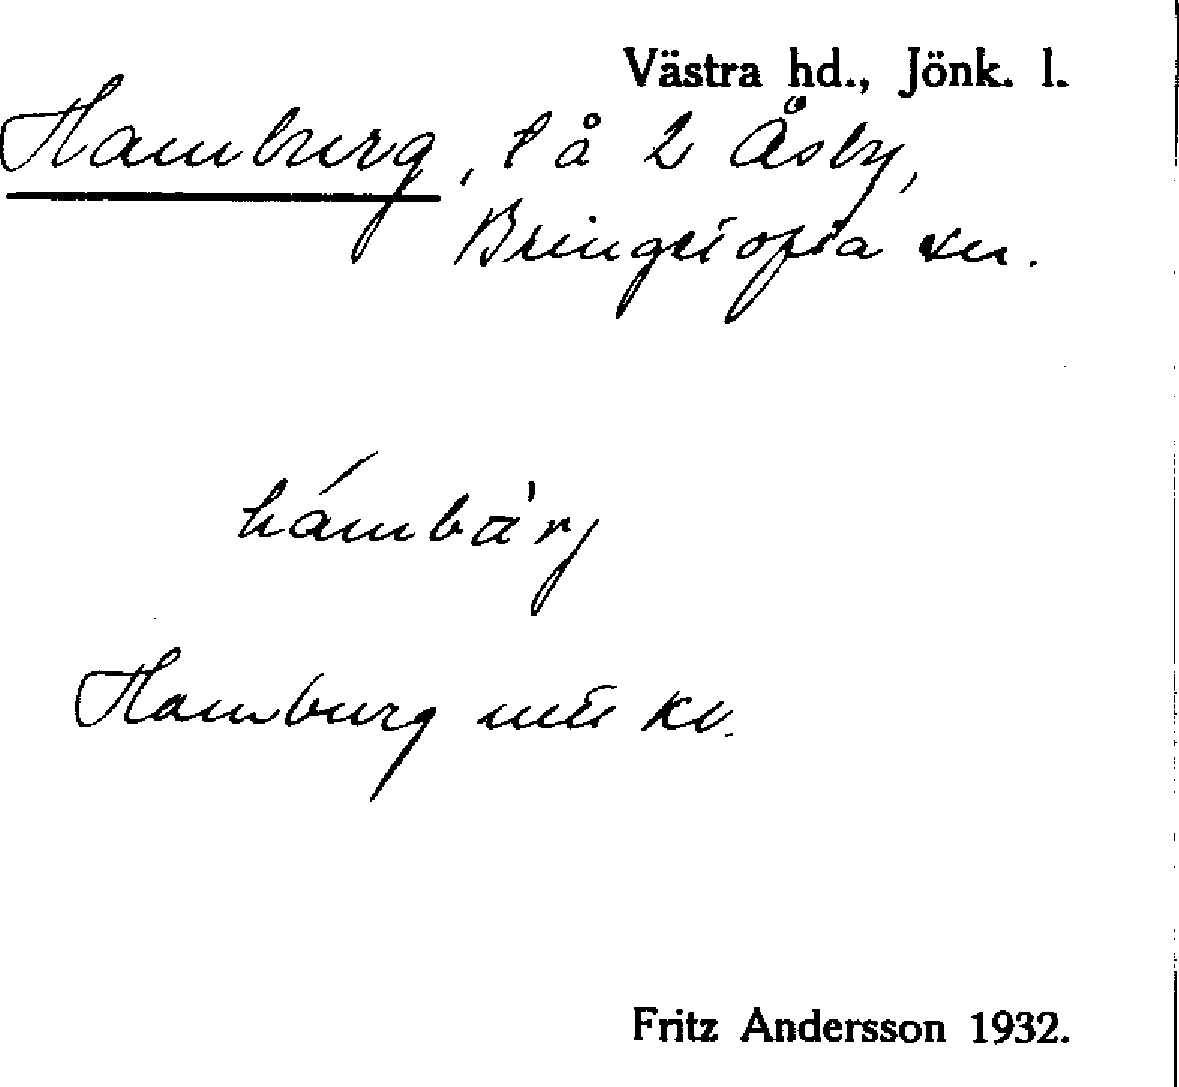 Västra hd., Jönk. l.
Hamburg, l å 2 Åsby,
Bringetofta sn.
hámbàrj
Hamburg kv.
Fritz Andersson 1932.